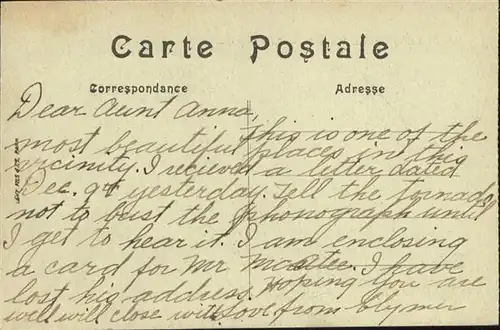 Carte Postale
Correspondance
Adresse
Dear Aunt Anna,
This is one of the
most beautiful places in this
vicinity. I recieved a letter dated
Dec. 9th yesterday. Tell the tornado
not to bust the phonograph until
I get to hear it. I am enclosing
a card for Mr I have
lost his address. Hoping you are
well will close with love from Clymer